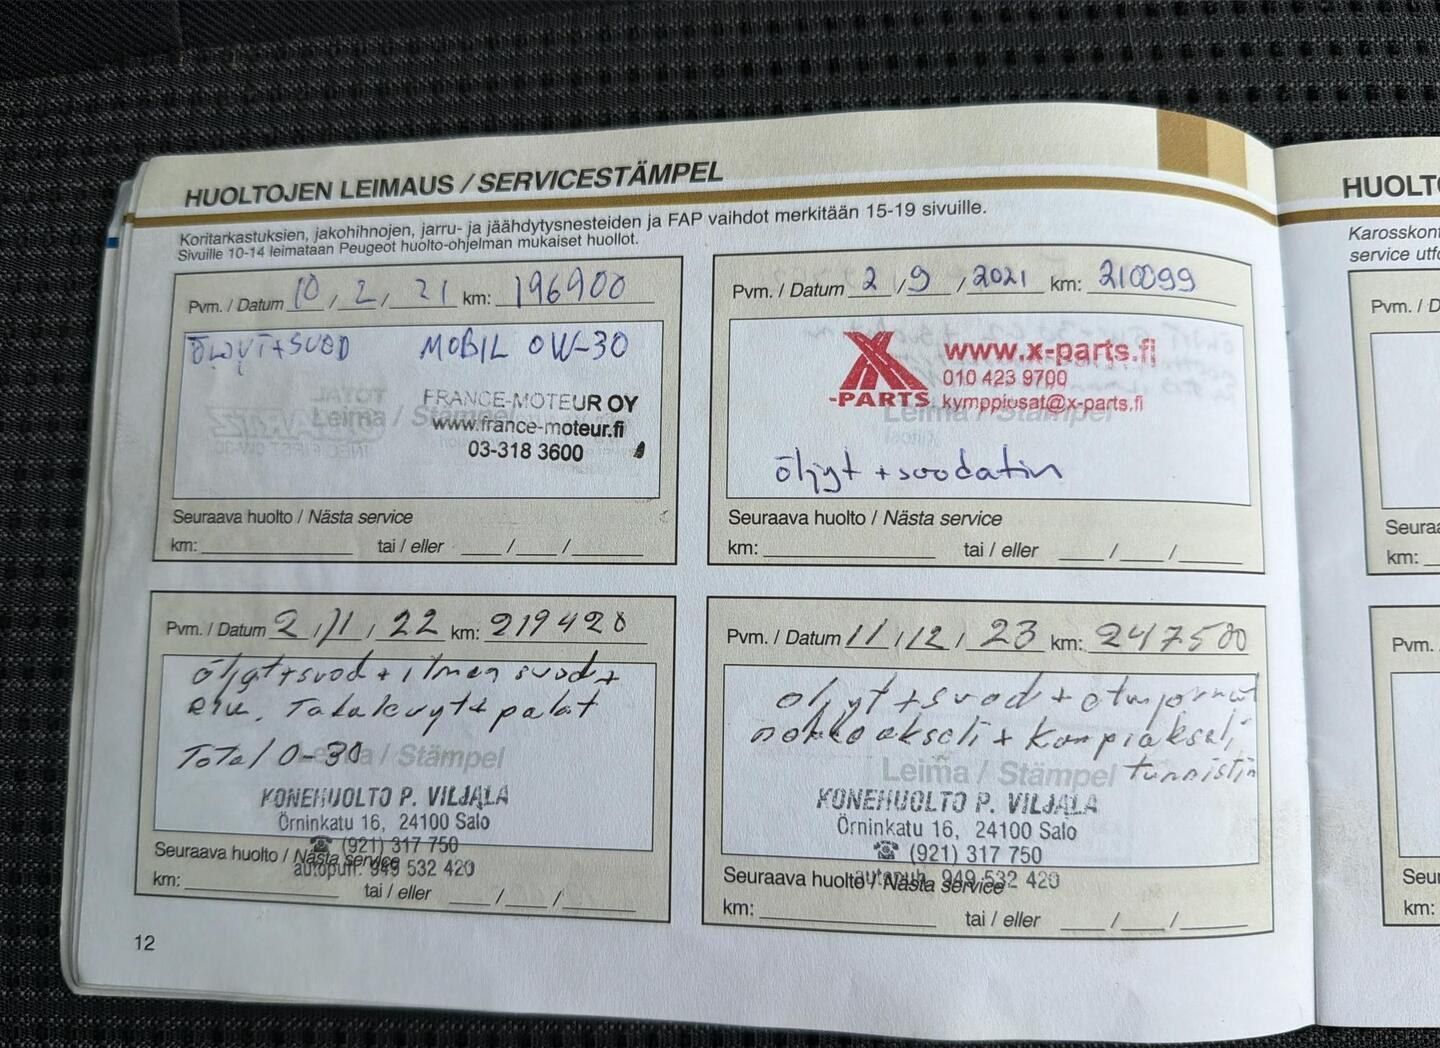 HUOLTOJEN LEIMAUS / SERVICESTÄMPEL
Koritarkastuksien, jakohihnojen, jarru- ja jäähdytysnesteiden ja FAP vaihdot merkitään 15-19 sivuille.
Sivuille 10-14 leimataan Peugeot huolto-ohjelman mukaiset huollot.
Pvm. / Datum 10 / 2 / 21 km: 196900
ÖLJYT+SUOD MOBIL 0W-30
FRANCE-MOTEUR OY
Leima / Stämpel
www.france-moteur.fi
03-318 3600
Seuraava huolto / Nästa service
km: tai / eller / /
Pvm. / Datum 2 / 9 / 2021 km: 210099
X-PARTS
www.x-parts.fi
010 423 9700
kymppiosat@x-parts.fi
Leima / Stämpel
öljyt + suodatin
Seuraava huolto / Nästa service
km: tai / eller / /
Pvm. / Datum 2 / 11 / 22 km: 219420
öljyt+suod + ilman suod+
etu. Takalevyt+ palat
Total 0-30
Leima / Stämpel
KONEHUOLTO P. VILJALA
Örninkatu 16, 24100 Salo
☎ (921) 317 750
autopuh. 949 532 420
Seuraava huolto / Nästa service
km: tai / eller / /
Pvm. / Datum 11 / 12 / 23 km: 247500
öljyt + suod +
nokka akseli + Kampiakseli
tunnistin
Leima / Stämpel
KONEHUOLTO P. VILJALA
Örninkatu 16, 24100 Salo
☎ (921) 317 750
autopuh. 949 532 420
Seuraava huolto / Nästa service
km: tai / eller / /
12
HUOLTO
Karosskont
service utfö
Pvm. / D
Seuraa
km:
Pvm.
Seu
km: